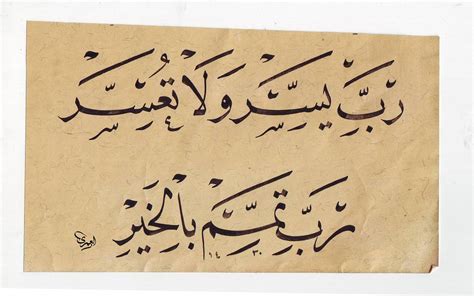 رَبِّ يَسِّرْ وَلَا تُعَسِّرْ
رَبِّ تَمِّمْ بِالْخَيْرِ
١٤٣٠